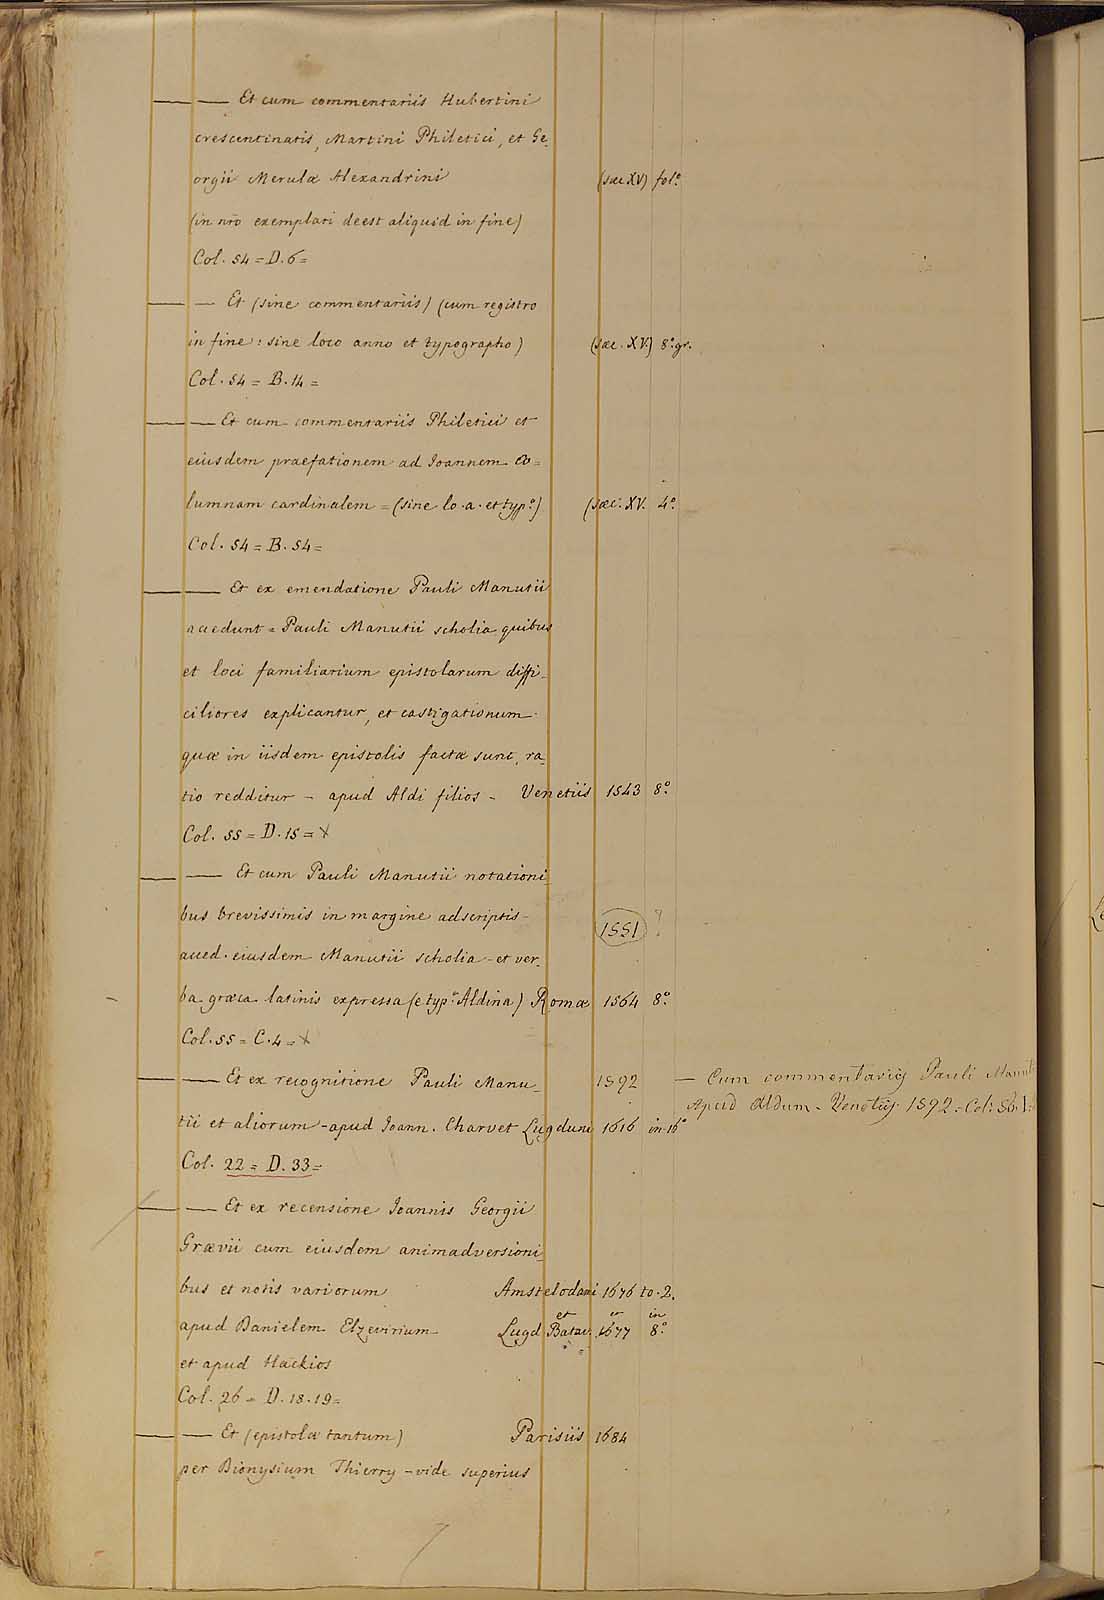 — — Et cum commentariis Hubertini
crescentinatis, Martini Philetici, et Ge-
orgii Merulæ Alexandrini (sæc XV) fol.º
(in nrō exemplari deest aliquid in fine)
Col. 54 = D. 6 =
— — Et (sine commentariis) (cum registro
in fine: sine loco anno et typographo) (sæc. XV.) 8.º gr.
Col. 54 = B. 14 =
— — Et cum commentariis Philetici et
eiusdem praefationem ad Ioannem Co=
lumnam cardinalem = (sine lo. a. et typ.º) (sæc. XV. 4.º
Col. 54 = B. 54 =
— — Et ex emendatione Pauli Manutii
accedunt = Pauli Manutii scholia quibus
et loci familiarium epistolarum diffi-
ciliores explicantur, et castigationum
quæ in iisdem epistolis factæ sunt, ra-
tio redditur - apud Aldi filios - Venetiis 1543 8.º
Col. 55 = D. 15 = X
— — Et cum Pauli Manutii notationi-
bus brevissimis in margine adscriptis - 1551 ?
acced. eiusdem Manutii scholia - et ver-
ba græca latinis expressa (e typ.ª Aldina) Romæ 1564 8.º
Col. 55 = C. 4 = X
— — Et ex recognitione Pauli Manu- 1592 — Cum commentariis Pauli Manutii
Apud Aldum - Venetiis 1592 - Col. 56. I.
tii et aliorum - apud Ioann. Charvet Lugduni 1616 in-16º
Col. 22 = D. 33 =
— — Et ex recensione Ioannis Georgii
Grævii cum eiusdem animadversioni-
bus et notis variorum Amstelodami 1676 to. 2.
et et in
apud Danielem Elzevirium Lugd. Batav. 1677 8.º
et apud Hackios
Col. 26 = D. 18. 19 =
— — Et (epistolæ tantum) Parisiis 1684
per Dionysium Thierry - vide superius